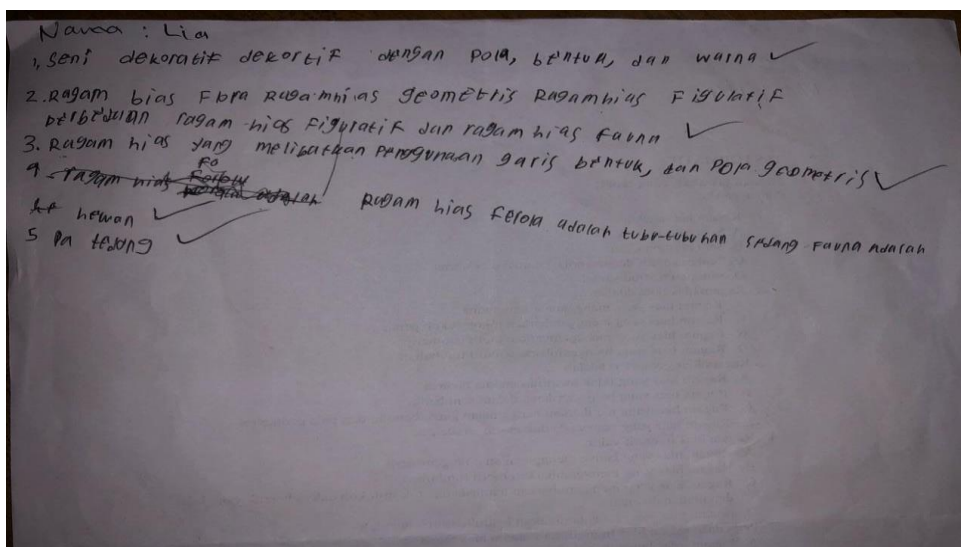 Nama : Lia
1, seni dekoratif dekortif dengan pola, bentuk, dan warna
2. Ragam bias Flora Ragamhias geometris Ragamhias Figulatif
perbeduan ragam hias Figuratif dan ragam hias fauna
3. Ragam hias yang melibatkan Penggunaan garis bentuk, dan Pola geometris
4. ragam hias
Ragam hias Felola adalah tubu-tubuhan sedang Fauna adalah
hewan
5 Pa tedong